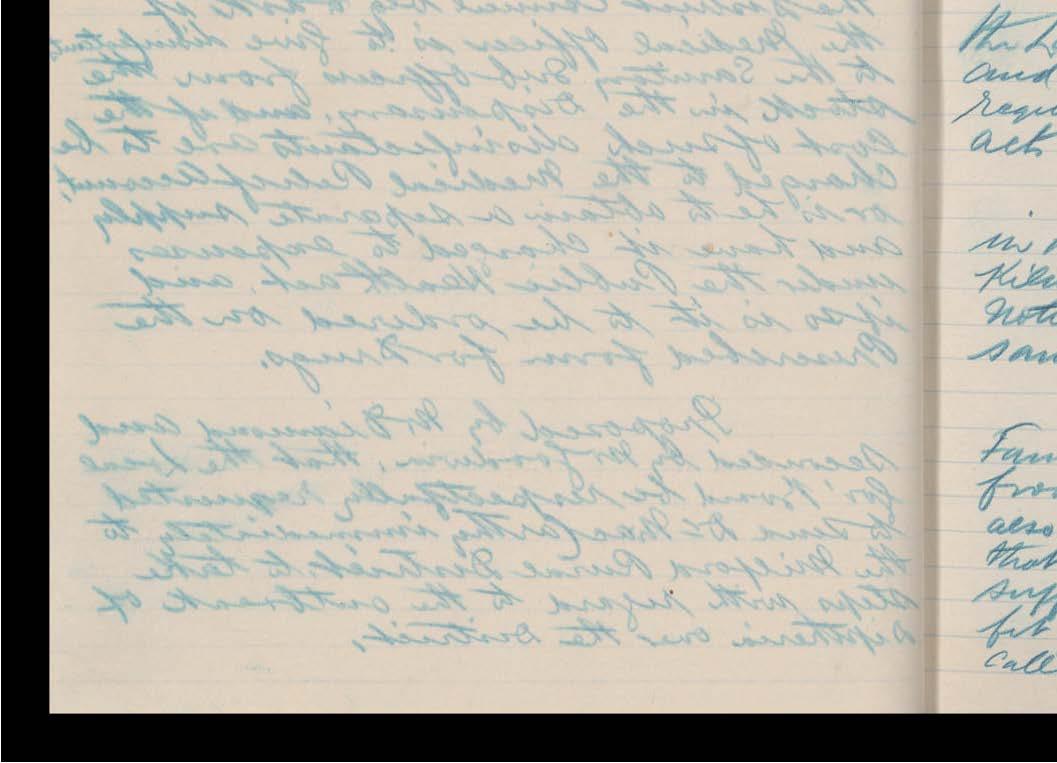 the District Council beg to ask if
the Medical officer is to give disinfectants
to the Sanitary Sub officers from the
stock in the Dispensary, and if the
Cost of such disinfectants are to be
charged to the Medical Relief account,
or is he to obtain a separate supply
and have it charged to expenses
under the Public Health act, and
if so is it to be ordered on the
Prescribed form for Drugs.
Proposed by Mr Dignan and
Seconded by Mr Goodwin, that the Local
Gov Board be respectfully requested
to send Dr MacCarthy immediately to
the Milford Rural District to take
steps with regard to the outbreak of
Diphtheria over the District.
the
and
requ
act
in
Kil
not
sam
Fan
from
also
that
suf
fit
call